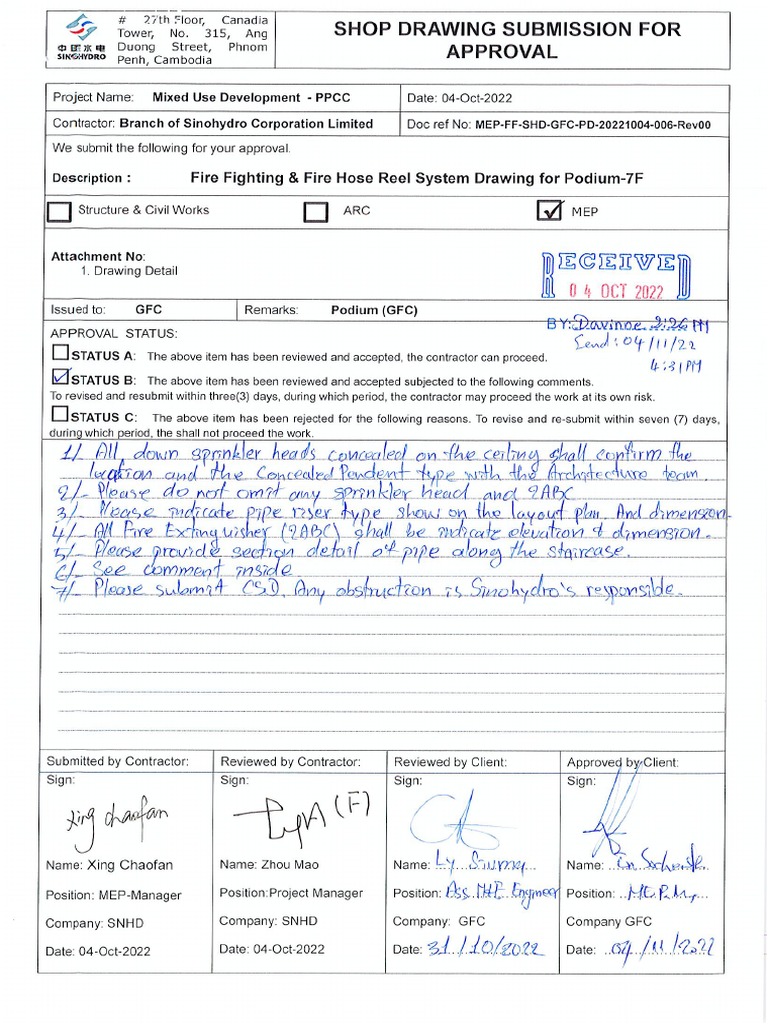 # 27th Floor, Canadia
Tower, No. 315, Ang
Duong Street, Phnom
Penh, Cambodia
中国水电
SINOHYDRO
SHOP DRAWING SUBMISSION FOR
APPROVAL
Project Name: Mixed Use Development - PPCC
Date: 04-Oct-2022
Contractor: Branch of Sinohydro Corporation Limited
Doc ref No: MEP-FF-SHD-GFC-PD-20221004-006-Rev00
We submit the following for your approval.
Description : Fire Fighting & Fire Hose Reel System Drawing for Podium-7F
Structure & Civil Works
ARC
MEP
Attachment No:
1. Drawing Detail
RECEIVED
04 OCT 2022
Issued to: GFC
Remarks: Podium (GFC)
BY: 2:26 PM
Send: 04/11/22
4:31PM
APPROVAL STATUS:
STATUS A: The above item has been reviewed and accepted, the contractor can proceed.
STATUS B: The above item has been reviewed and accepted subjected to the following comments.
To revised and resubmit within three(3) days, during which period, the contractor may proceed the work at its own risk.
STATUS C: The above item has been rejected for the following reasons. To revise and re-submit within seven (7) days,
during which period, the shall not proceed the work.
1/- All, down sprinkler heads concealed on the ceiling shall confirm the
location and the Concealed Pendent type with the Architecture team.
2/- Please do not omit any sprinkler head and 2ABC
3/- Please indicate pipe riser type show on the layout plan. And dimension.
4/- All Fire Extinguisher (2ABC) shall be indicate elevation & dimension.
5/- Please provide section detail of pipe along the staircase.
6/- See comment inside
7/- Please submit CSD. Any obstruction is Sinohydro's responsible.
Submitted by Contractor:
Reviewed by Contractor:
Reviewed by Client:
Approved by Client:
Sign:
Sign:
Sign:
Sign:
Xing Chaofan
(F)
Name: Xing Chaofan
Name: Zhou Mao
Name: Ly
Name:
Position: MEP-Manager
Position:Project Manager
Position: Ass. M&E Engineer
Position:
Company: SNHD
Company: SNHD
Company: GFC
Company GFC
Date: 04-Oct-2022
Date: 04-Oct-2022
Date: 31/10/2022
Date: 04/11/2022